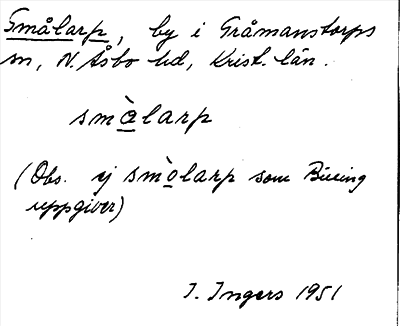 Smålarp, by i Gråmanstorps
sn, N. Åsbo hd, Krist. län.
smàlarp
(Obs. ej smòlarp som Billing
uppgiver)
I. Ingers 1951